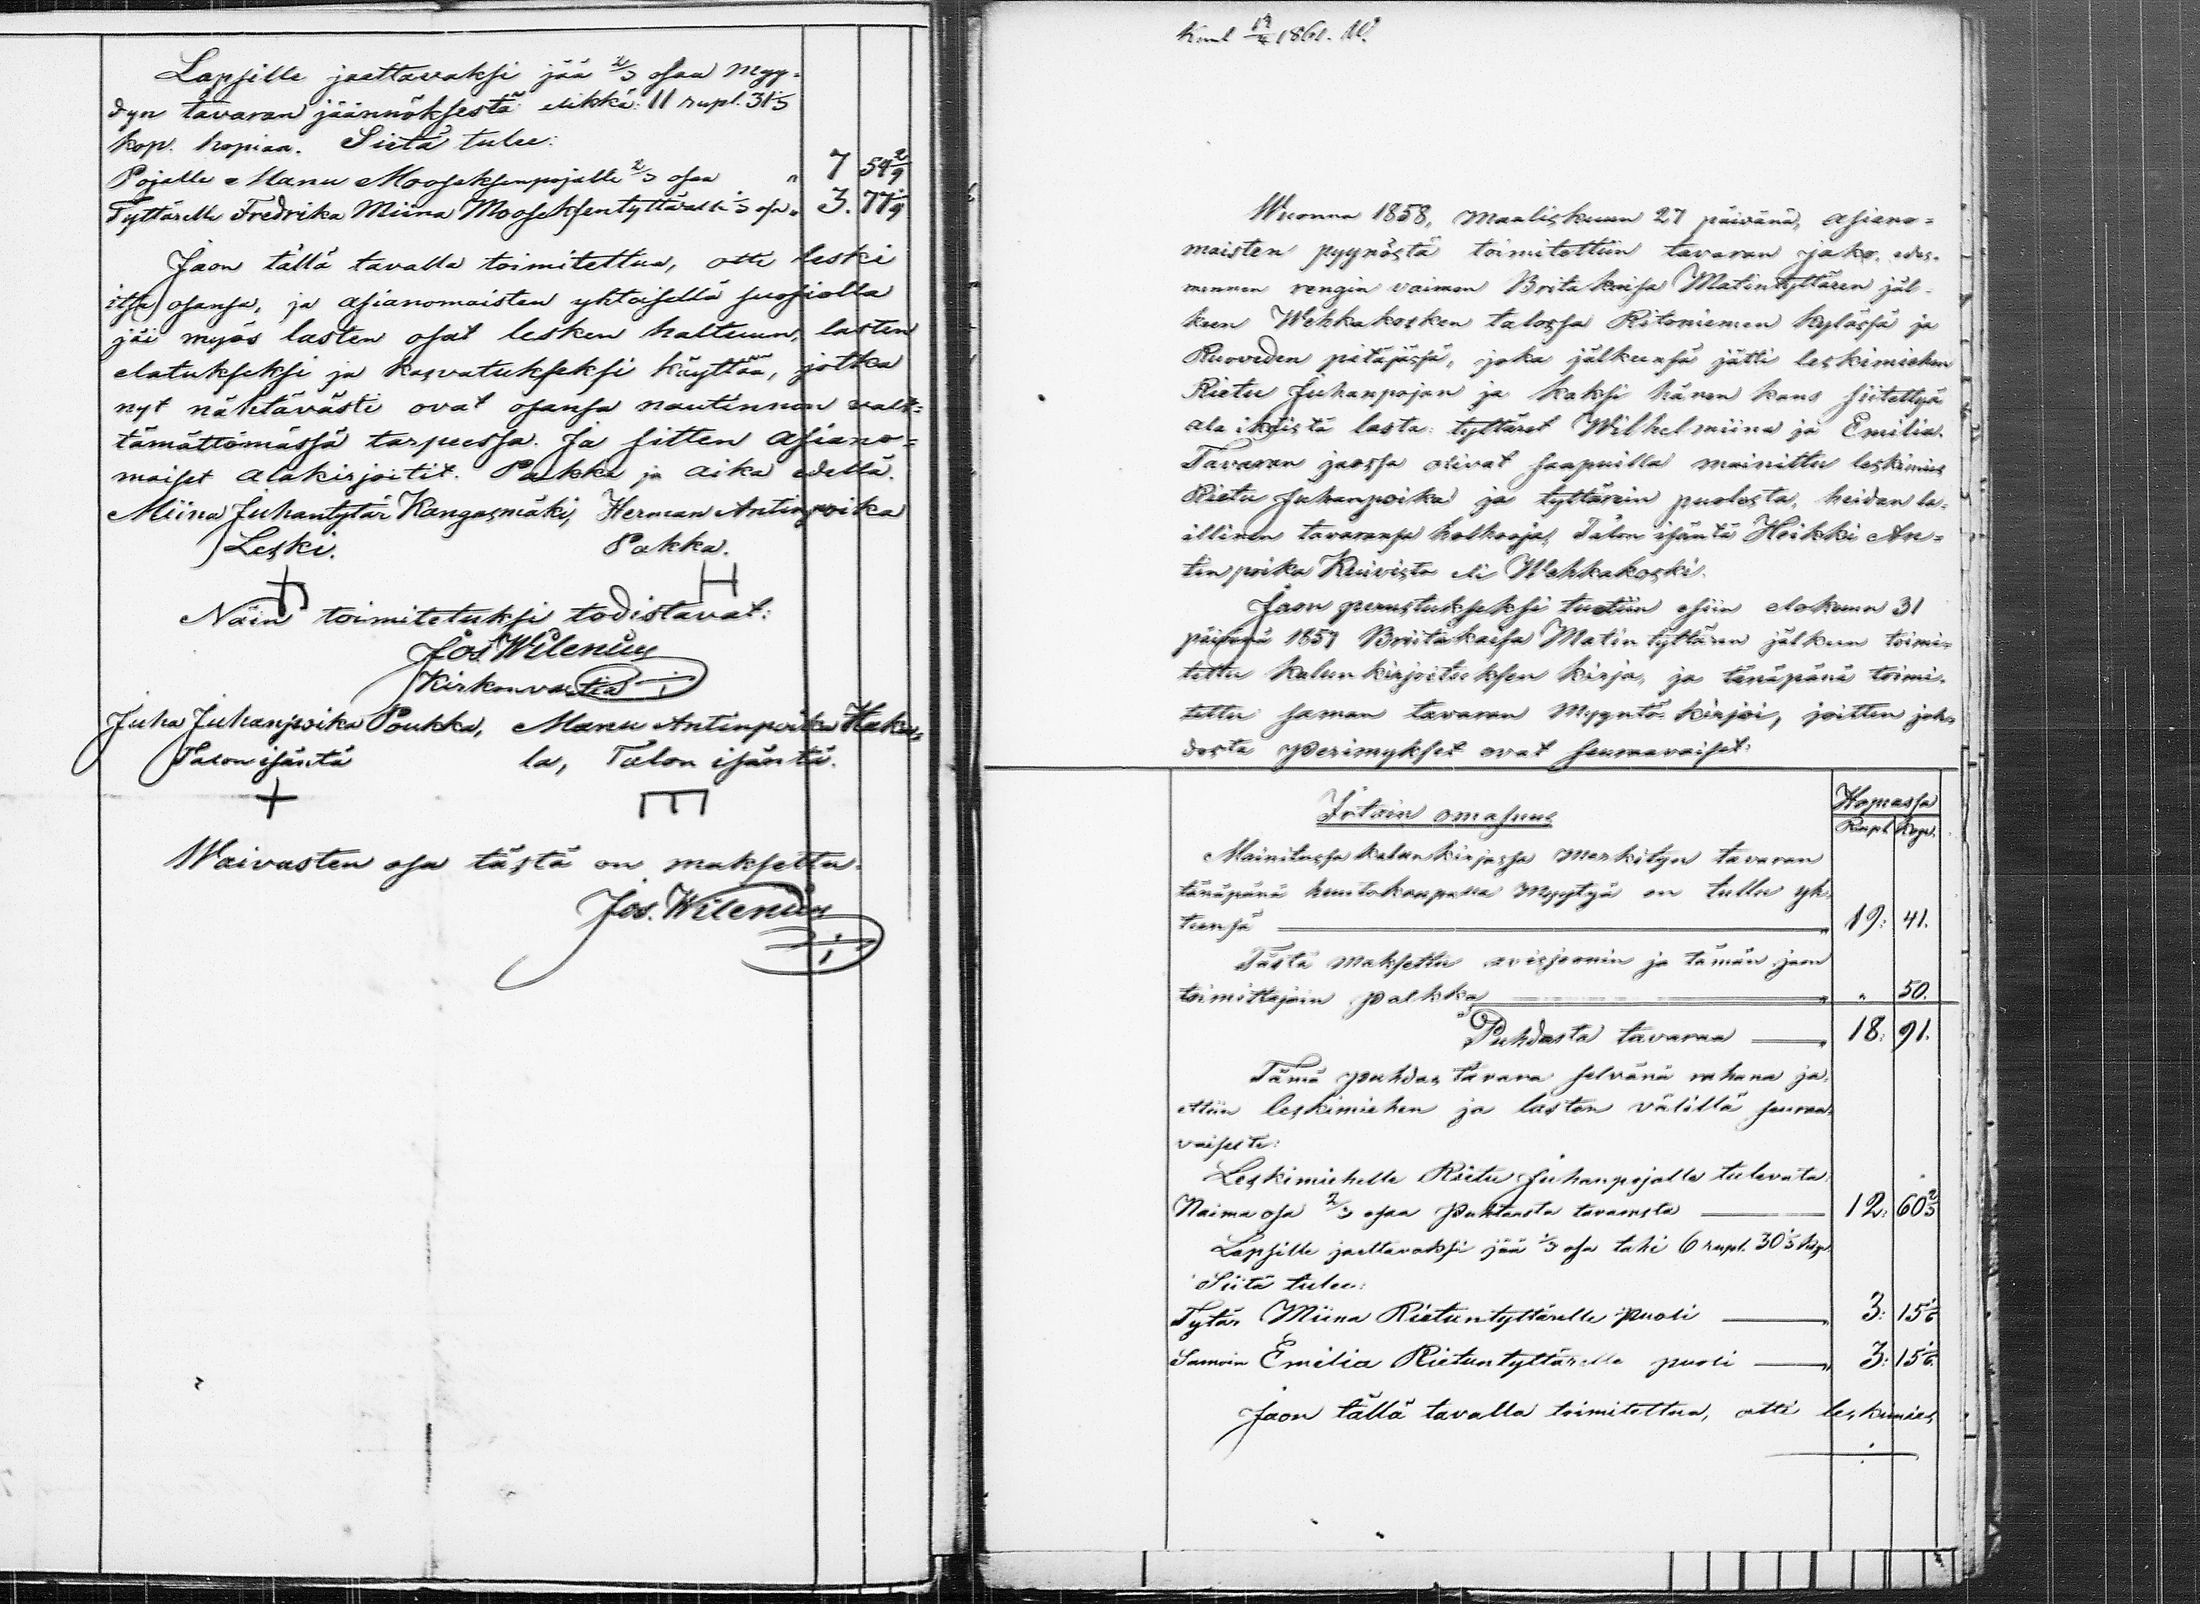 Lapsille jaettavaksi jää 2/3 osaa myy-
dyn tavaran jäännöksestä elikkä: 11 rupl. 31 1/3
kop. hopiaa. Siitä tulee:
Pojalle Manu Mooseksenpojalle 2/3 osaa " 7 54 2/9
Tyttärelle Fredrika Miina Mooseksentyttärelle 1/3 osa " 3. 77 1/9
Jaon tällä tavalla toimitettua, otti leski
itse osansa, ja asianomaisten yhteisellä suosiolla
jäi myös lasten osat lesken haltuun, lasten
elatukseksi ja kasvatukseksi käyttää, jotka
nyt nähtävästi ovat osansa nautinnon vält-
tämättömässä tarpeessa. Ja sitten asiano-
maiset alakirjoitit. Paikka ja aika edellä.
Miina Juhantytär Kangasmäki, Herman Antinpoika
Leski. Pakka.
Näin toimitetuksi todistavat:
Jos. Wilenius
Kirkonvartia
Juha Juhanpoika Poukka, Manu Antinpoika Haka-
Talon isäntä la, Talon isäntä.
Waivasten osa tästä on maksettu.
Jos. Wilenius
1861.
Wuonna 1858, Maaliskuun 27 päivänä, asiano-
maisten pyynöstä toimitettiin tavaran jako, edes-
mennen rengin vaimon Brita Kaisa Matintyttären jäl-
keen Wehkakosken talossa Ritoniemen kylässä ja
Ruoveden pitäjässä, joka jälkeensä jätti leskimiehen
Rietu Juhanpojan ja kaksi hänen kans siitettyä
ala ikäistä lasta: tyttäret Wilhelmiina ja Emilia.
Tavaran jaossa olivat saapuilla mainittu leskimies
Rietu Juhanpoika ja tyttärein puolesta, heidän la-
illinen tavaransa holhooja, Talon isäntä Heikki An-
tinpoika Kuivista eli Wehkakoski.
Jaon perustukseksi tuotiin esiin elokuun 31
päivänä 1857 Briita Kaisa Matin tyttären jälkeen toimi-
tettu kalun kirjoituksen kirja, ja tänäpänä toimi-
tettu saman tavaran myyntö kirjoi, joitten joh-
dosta perimykset ovat seuraavaiset:
Irtain omasuus Hopiassa
Rupl. Kop.
Mainitussa kalunkirjassa merkityn tavaran
tänäpänä huutokaupalla myytyä on tullu yh-
teensä " 19: 41.
Tästä maksettu arvisjoonin ja tämän jaon
toimittajain palkka " " 50.
Puhdasta tavaraa " 18: 91.
Tämä puhdas tavara selvänä rahana ja-
ettiin leskimiehen ja lasten välillä seuraa-
vaisesti:
Leskimiehelle Rietu Juhanpojalle tulevata
Naima osa 2/3 osaa puhtaasta tavarasta 12: 60 2/3
Lapsille jaettavaksi jää 1/3 osa tahi 6 rupl. 30 1/3 kop.
Siitä tulee:
Tytär Miina Rietuntyttärelle puoli " 3: 15 1/6
Samoin Emilia Rietuntyttärelle puoli " 3: 15 1/6
Jaon tällä tavalla toimitettua, otti leskimies